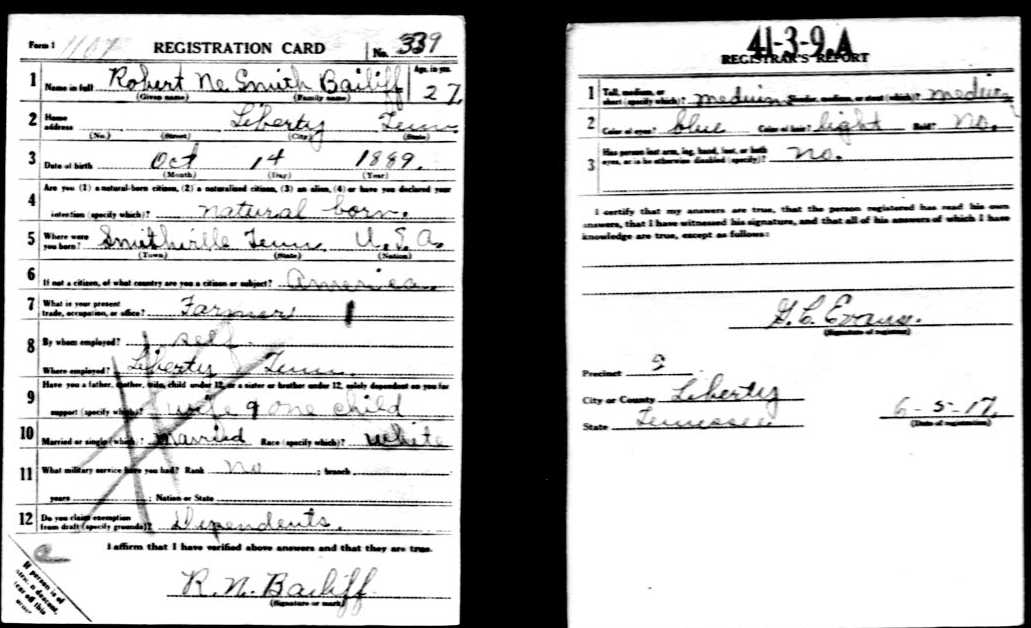 Form 1 1107 REGISTRATION CARD No. 339
1 Name in full Robert Ne Smith Bailiff Age, in yrs. 27
(Given name) (Family name)
2 Home address Liberty Tenn
(No.) (Street) (City) (State)
3 Date of birth Oct 14 1889.
(Month) (Day) (Year)
4 Are you (1) a natural-born citizen, (2) a naturalized citizen, (3) an alien, (4) or have you declared your
intention (specify which)? natural born.
5 Where were you born? Smithville Tenn U.S.A.
(Town) (State) (Nation)
6 If not a citizen, of what country are you a citizen or subject? America
7 What is your present trade, occupation, or office? Farmer
8 By whom employed? self
Where employed? Liberty Tenn.
9 Have you a father, mother, wife, child under 12, or a sister or brother under 12, solely dependent on you for
support (specify which)? wife & one child
10 Married or single (which)? married Race (specify which)? white
11 What military service have you had? Rank no ; branch
years ; Nation or State
12 Do you claim exemption from draft (specify grounds)? Dependents.
I affirm that I have verified above answers and that they are true.
R. N. Bailiff
(Signature or mark)
If person is of
tear off this
41-3-9.A
REGISTRAR'S REPORT
1 Tall, medium, or short (specify which)? medium Slender, medium, or stout (which)? medium
2 Color of eyes? blue Color of hair? light Bald? No.
3 Has person lost arm, leg, hand, foot, or both eyes, or is he otherwise disabled (specify)? No.
I certify that my answers are true, that the person registered has read his own
answers, that I have witnessed his signature, and that all of his answers of which I have
knowledge are true, except as follows:
G. C. Evans.
(Signature of registrar)
Precinct 9
City or County Liberty
State Tennessee
6-5-17.
(Date of registration)